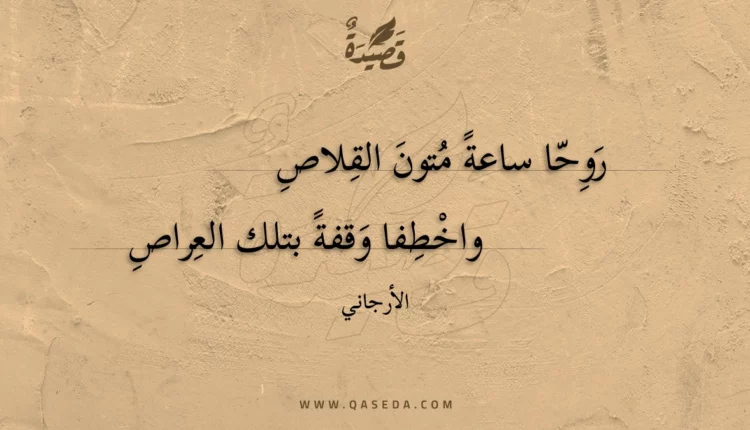 قَصِيْدَةٌ
رَوِحّا ساعةً مُتونَ القِلاصِ
واخْطِفا وَقفةً بتلك العِراصِ
الأرجاني
WWW.QASEDA.COM